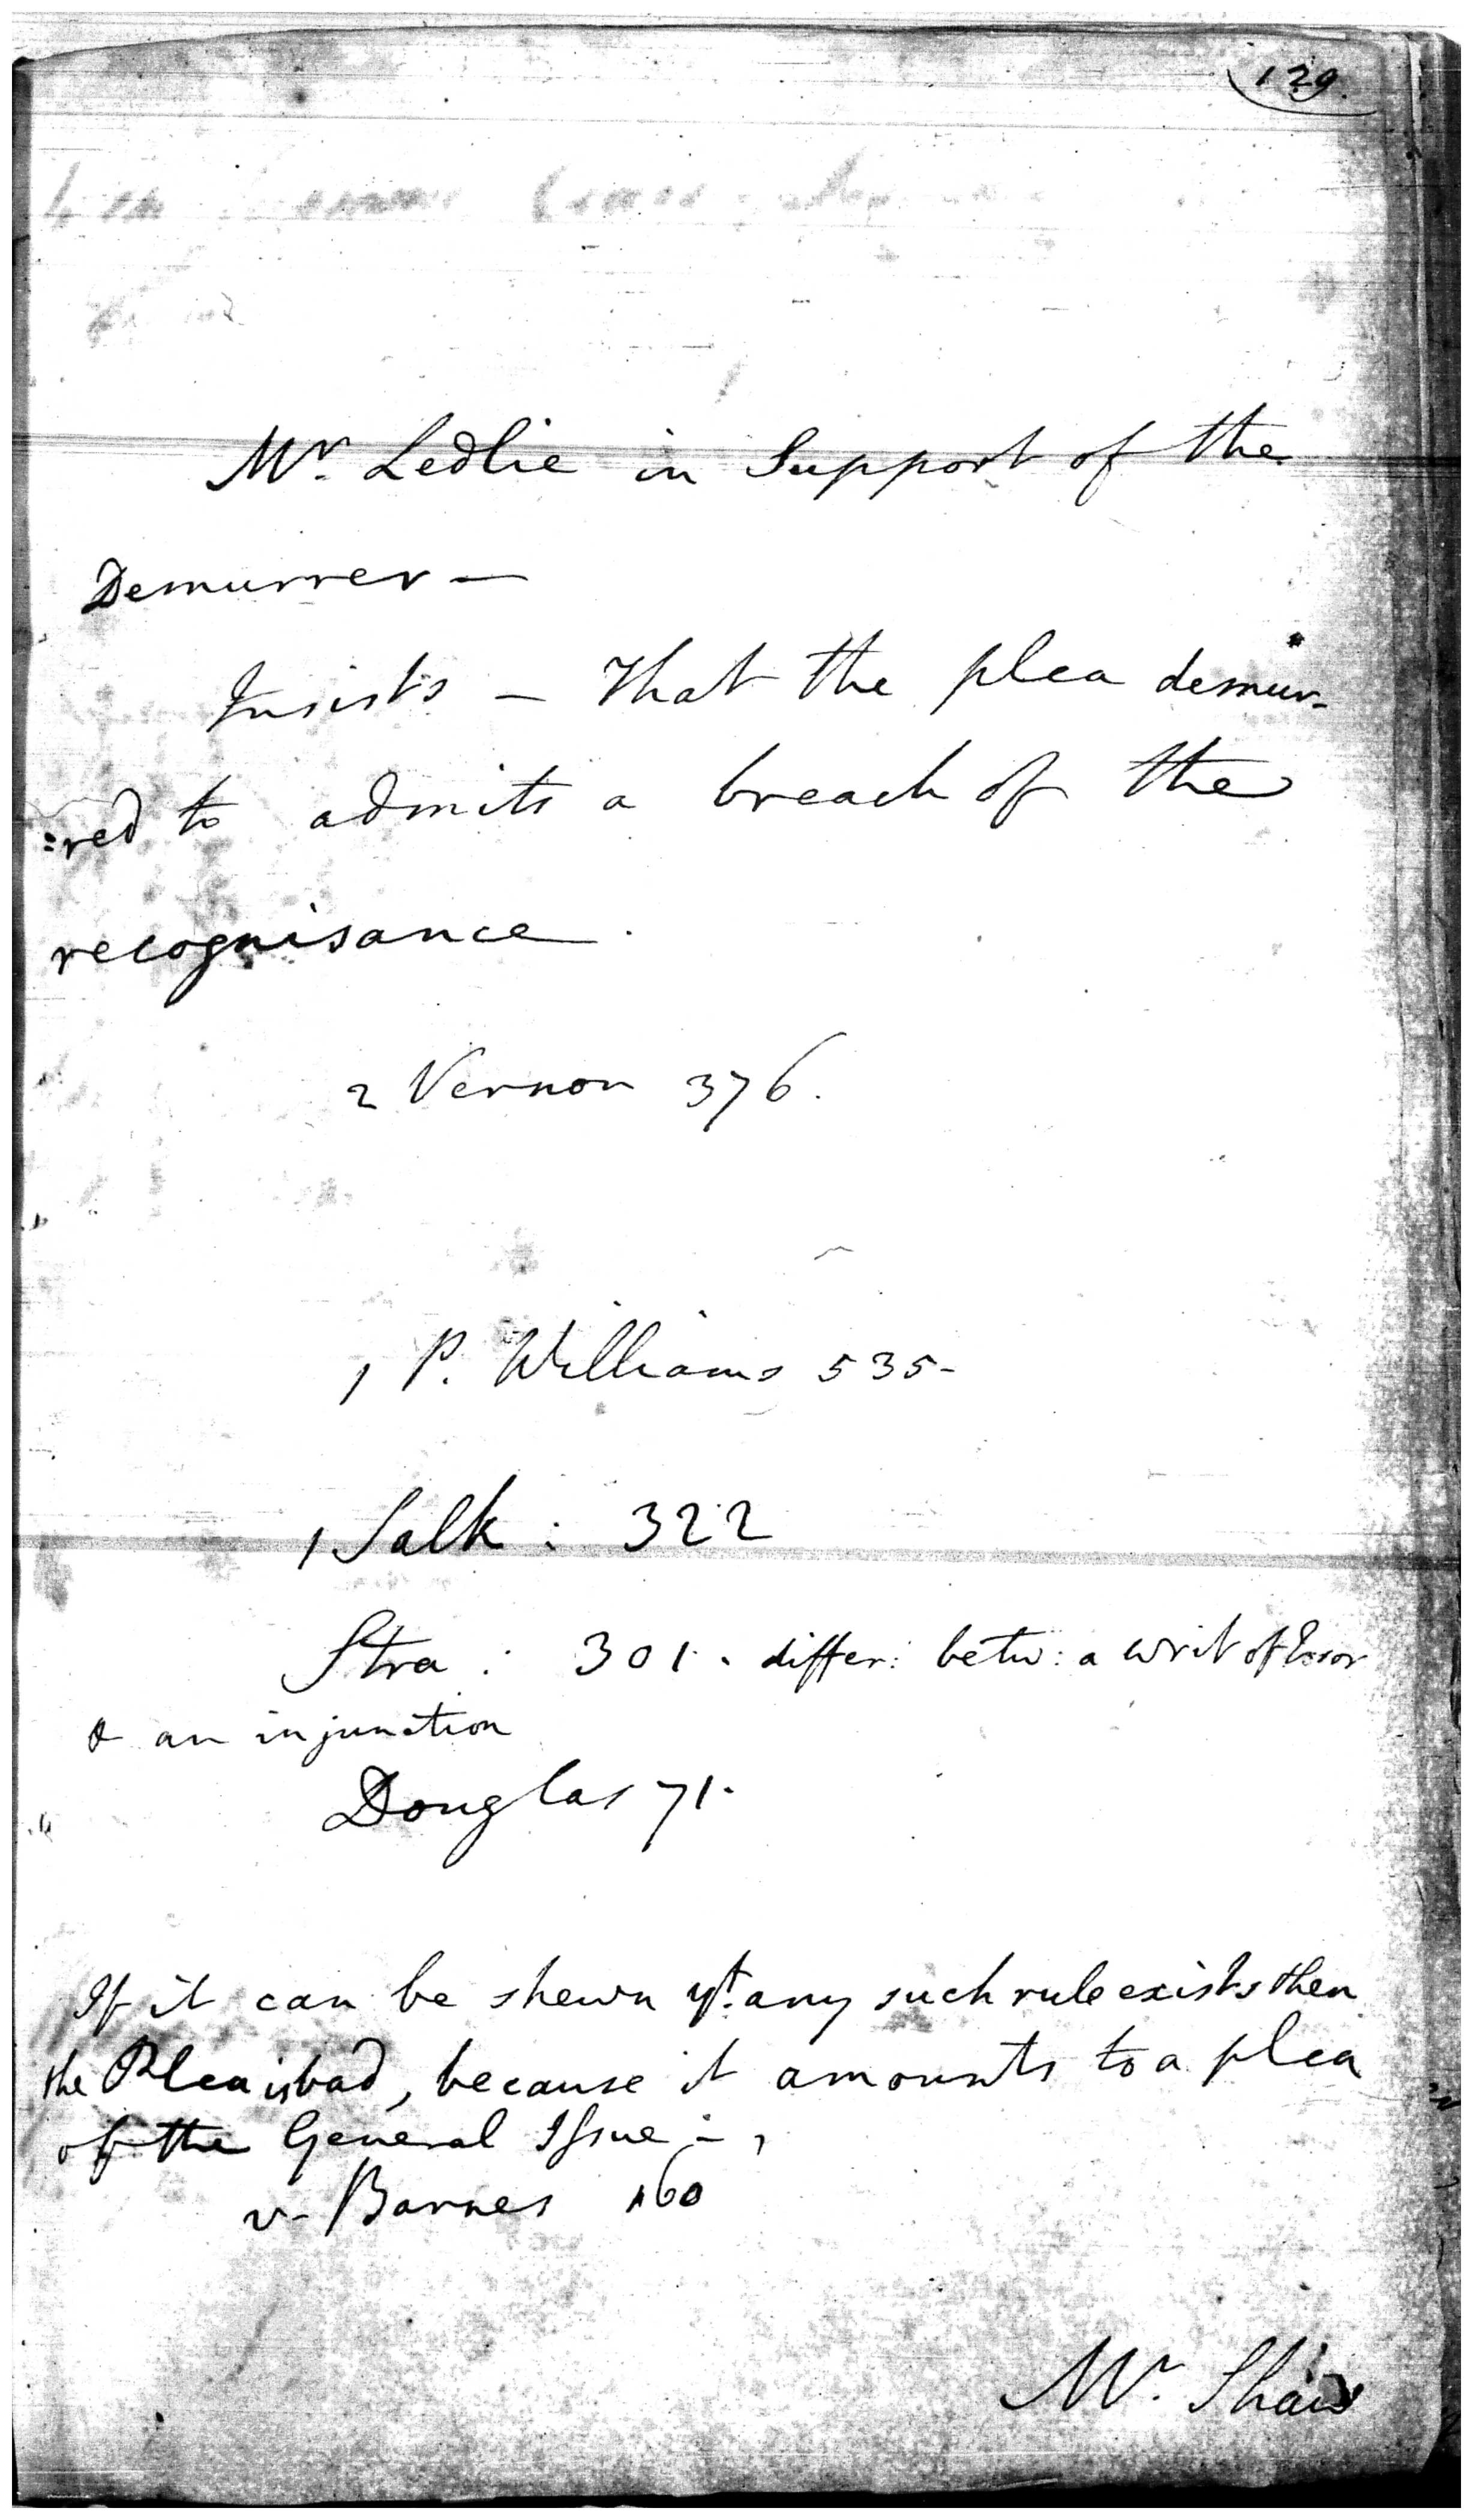 129.
Mr. Ledlie in Support of the
Demurrer —
Insists — That the plea demur-
:red to admits a breach of the
recognisance.
2 Vernon 376.
1 P. Williams 535-
1 Salk : 322
Stra : 301. differ: betw: a writ of Error
& an injunction
Douglas 71.
If it can be shewn yt. any such rule exists then
the Plea is bad, because it amounts to a plea
of the General Issue -
v- Barnes 160
Mr. Shaw